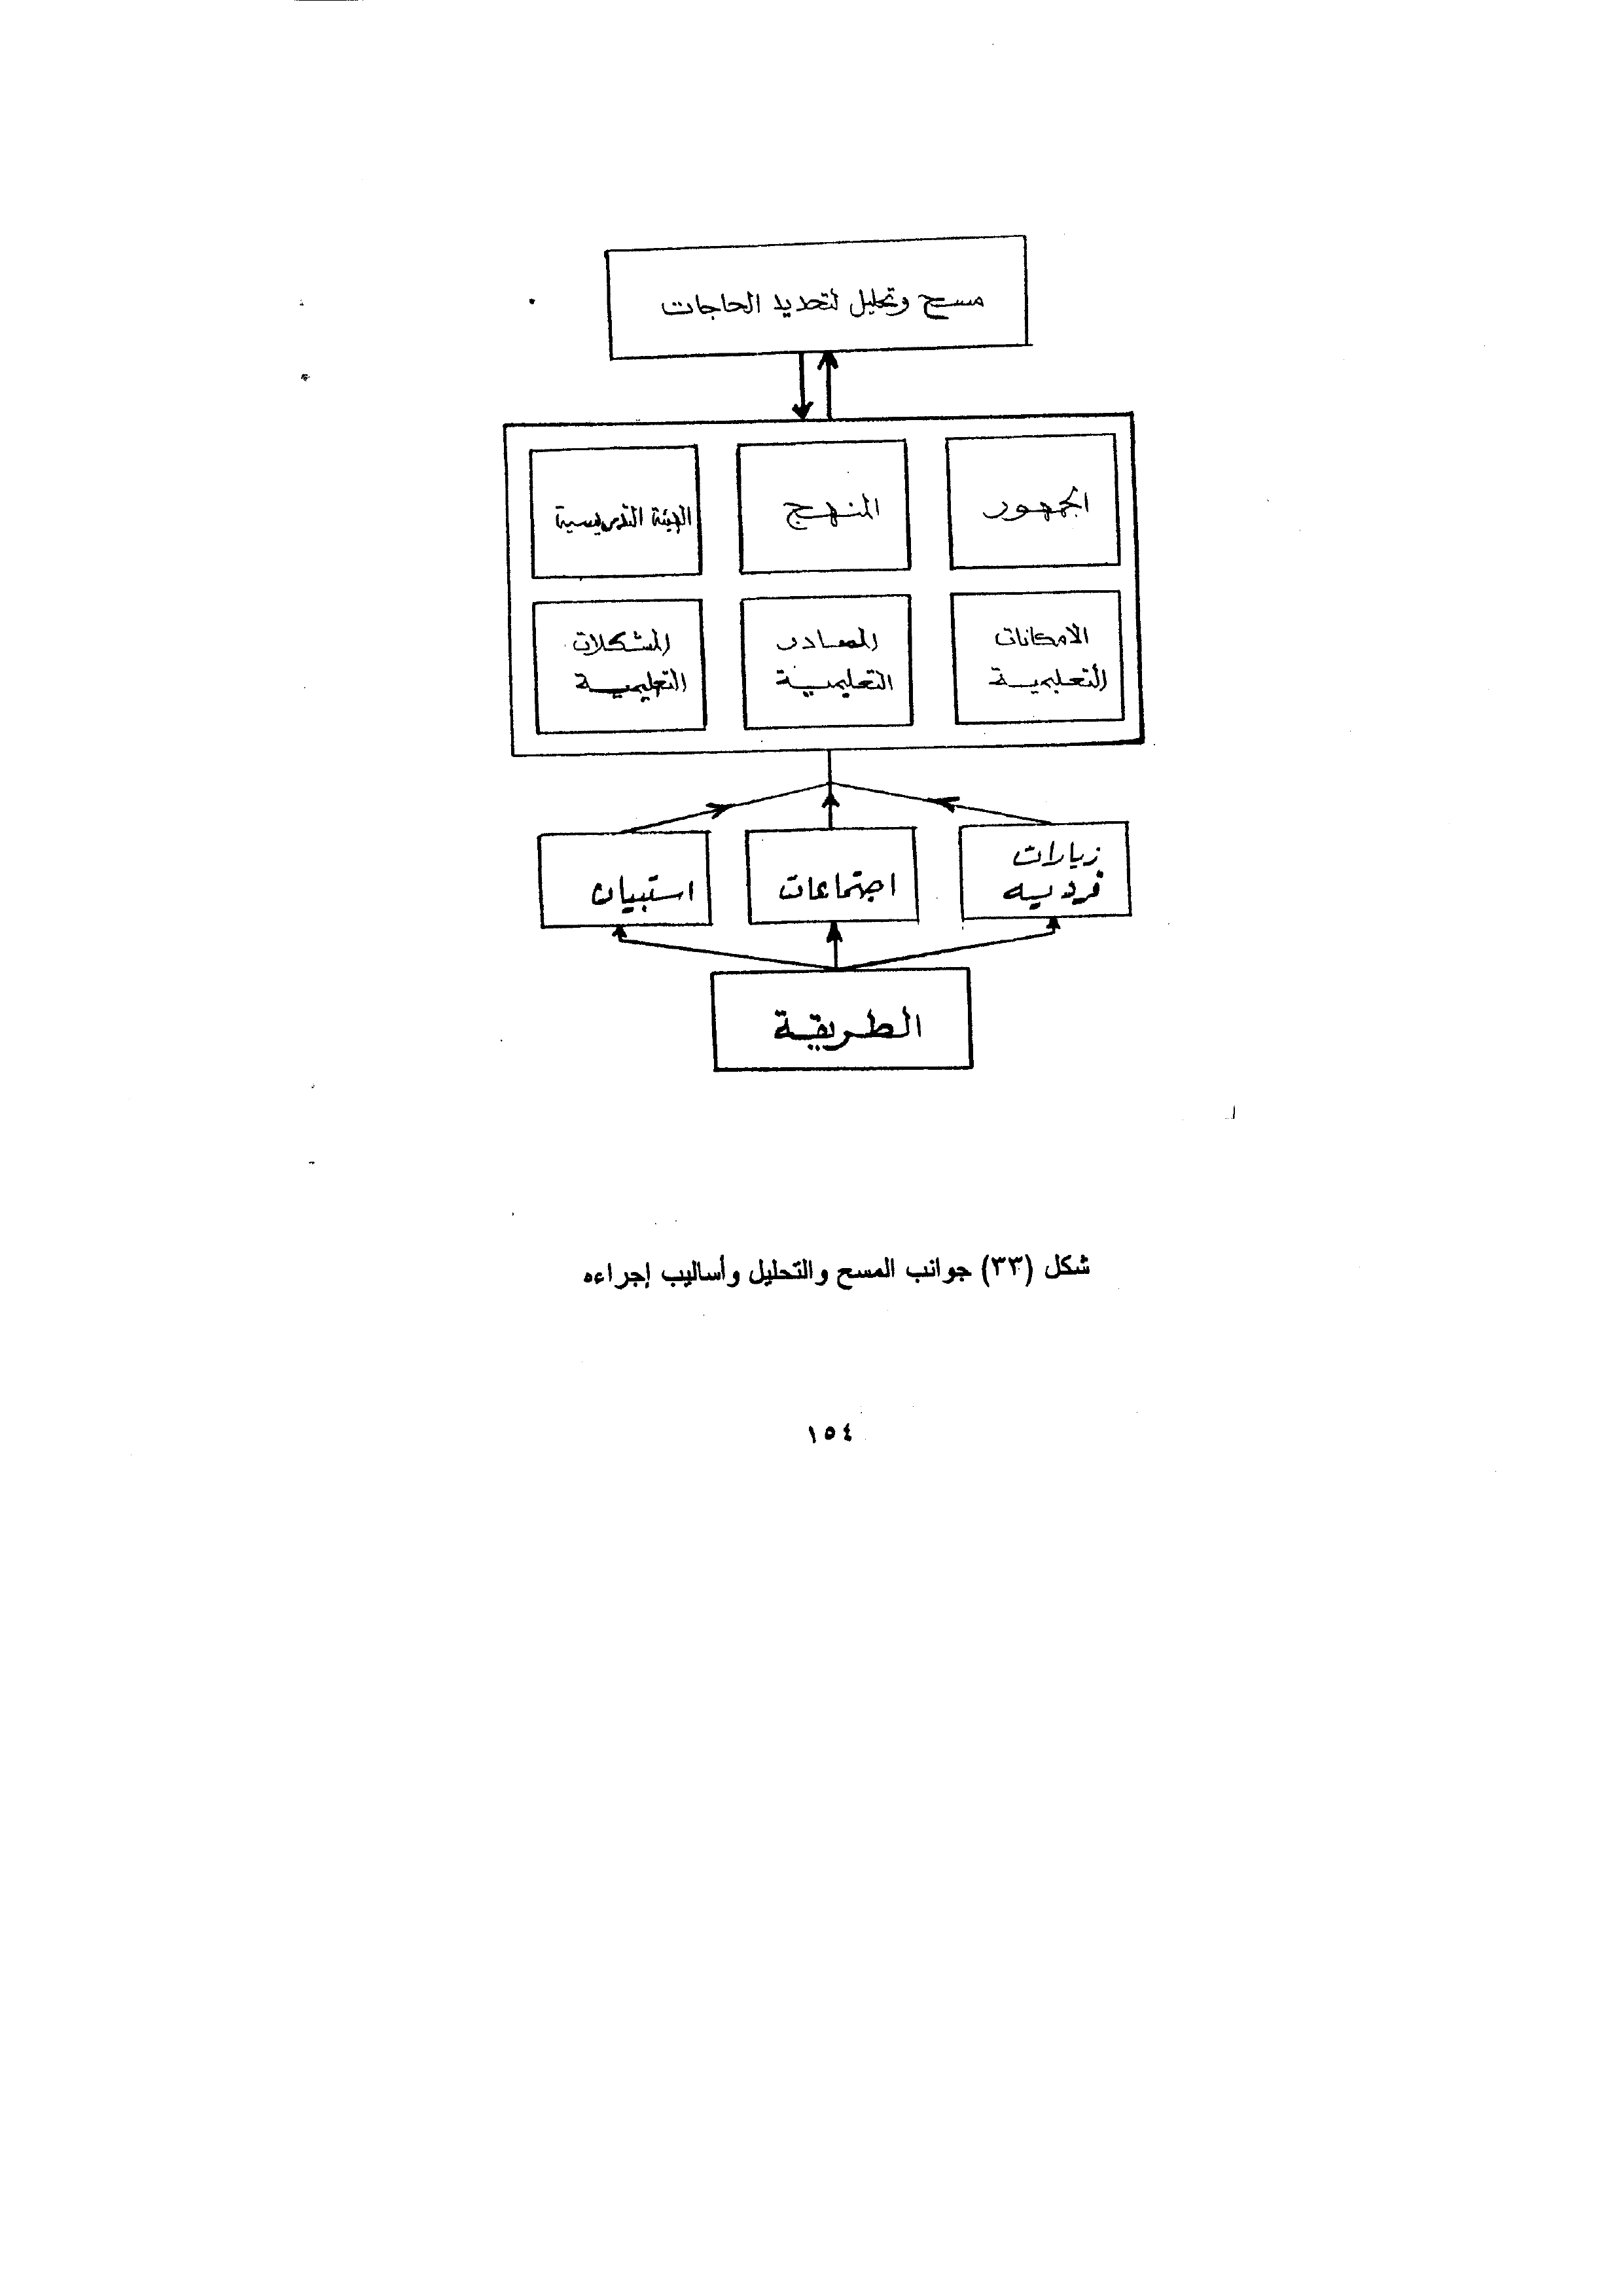 مسح وتحليل لتحديد الحاجات
الجمهور
المنهج
الهيئة التدريسية
الامكانات
التعليمية
المصادر
التعليمية
المشكلات
التعليمية
زيارات
فرديه
اجتماعات
استبيان
الطريقة
شكل (٣٣) جوانب المسح والتحليل وأساليب إجراءه
١٥٤